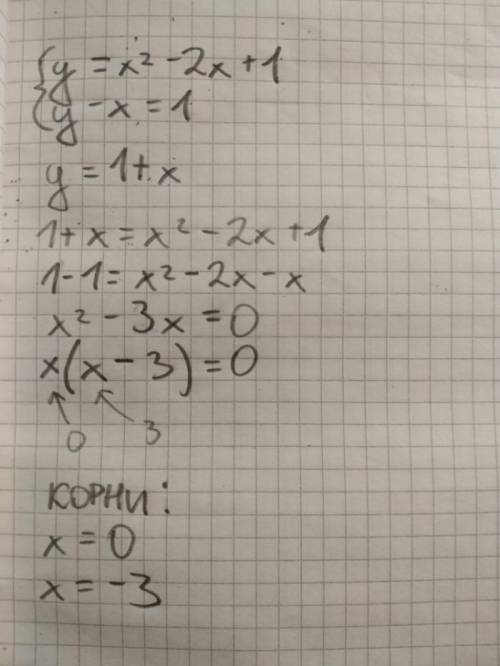 {y = x² - 2x + 1
{y - x = 1
y = 1 + x
1 + x = x² - 2x + 1
1 - 1 = x² - 2x - x
x² - 3x = 0
x(x - 3) = 0
0 3
КОРНИ:
x = 0
x = -3